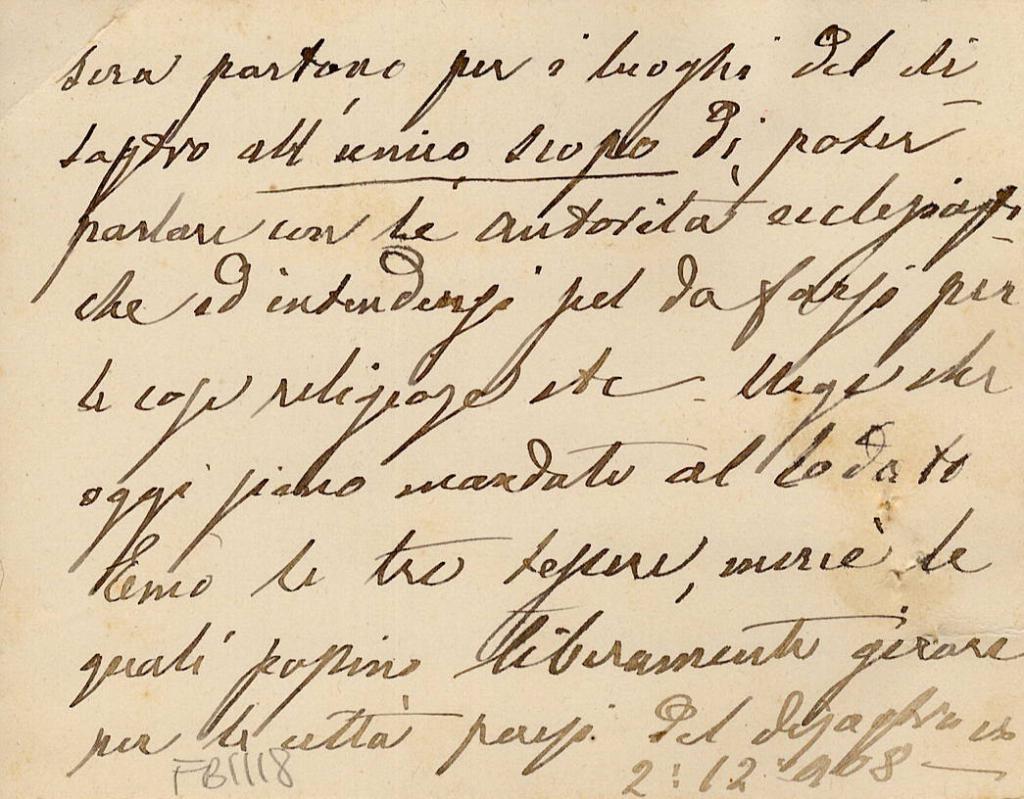 sera partono per i luoghi del di
sastro all'unico scopo di poter
parlare con le autorità ecclesiasti
che ed intendersi pel da farsi per
le cose religiose etc - Urge che
oggi siano mandate al lodato
Emo le tre tessere, mercè le
quali possino liberamente girare
per le città paesi del disastro
2:12:908 -
FB1118